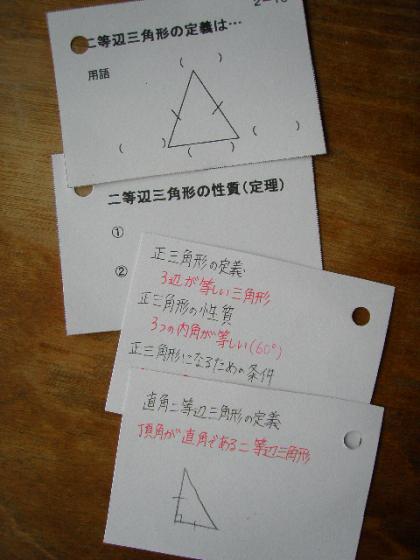 二等辺三角形の定義は…
用語
(　　)
(　　)
(　　)
(　　)
二等辺三角形の性質(定理)
①
②
正三角形の定義
3辺が等しい三角形
正三角形の性質
3つの内角が等しい(60°)
正三角形になるための条件
直角二等辺三角形の定義
頂角が直角である二等辺三角形